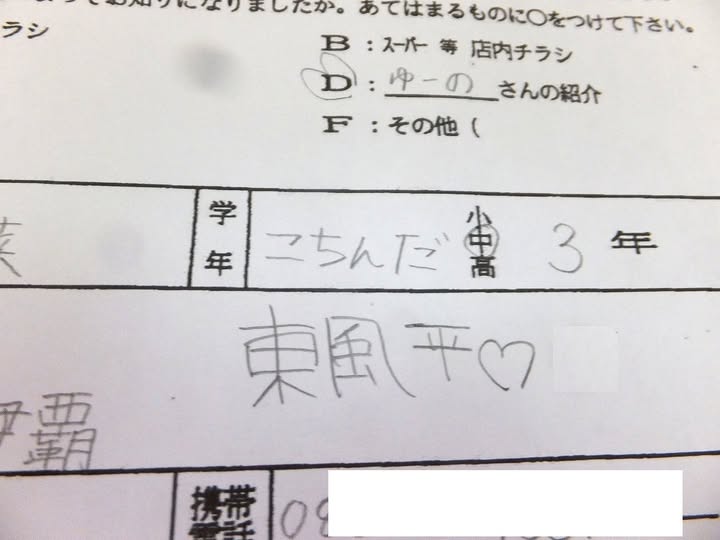 お知りになりましたか。あてはまるものに○をつけて下さい。
ラシ
B：スーパー 等 店内チラシ
D：ゆーの さんの紹介
F：その他（
菜
学年 こちんだ 小中高 3 年
東風平♡
伊覇
携帯電話 08